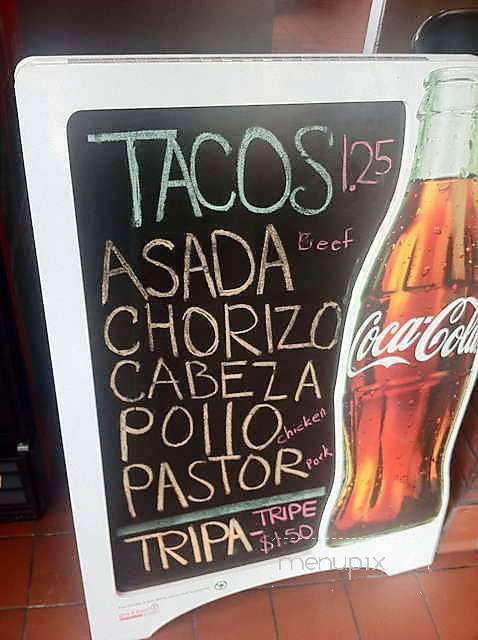 TACOS 1.25
ASADA Beef
CHORIZO
CABEZA
POLLO chicken
PASTOR Pork
TRIPA - TRIPE
$1.50
Coca-Cola
menupix